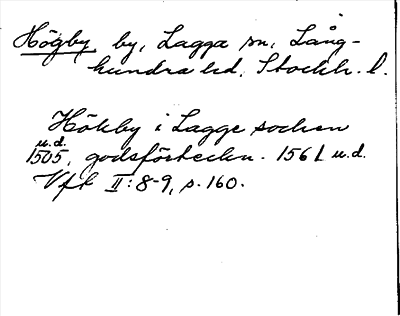 Högby by, Lagga sn, Lång-
hundra hd, Stockh. l.
Hökby i Lagge socken
u.d.
1505, godsförteckn. 1561 u.d.
Vfk II:8-9, s.160.